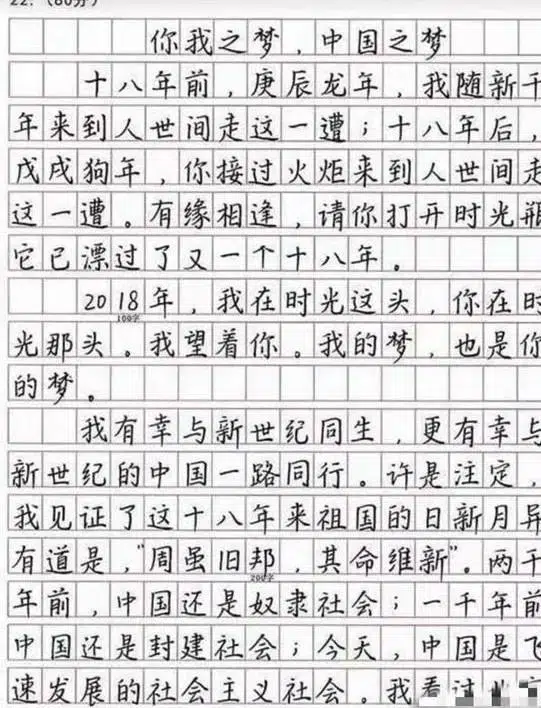 22.（60分）
你我之梦，中国之梦
十八年前，庚辰龙年，我随新千
年来到人世间走这一遭；十八年后，
戊戌狗年，你接过火炬来到人世间走
这一遭。有缘相逢，请你打开时光瓶
它已漂过了又一个十八年。
2018年，我在时光这头，你在时
100字
光那头。我望着你。我的梦，也是你
的梦。
我有幸与新世纪同生，更有幸与
新世纪的中国一路同行。许是注定，
我见证了这十八年来祖国的日新月异
有道是，"周虽旧邦，其命维新"。两千
200字
年前，中国还是奴隶社会；一千年前
中国还是封建社会；今天，中国是飞
速发展的社会主义社会。我看过北京